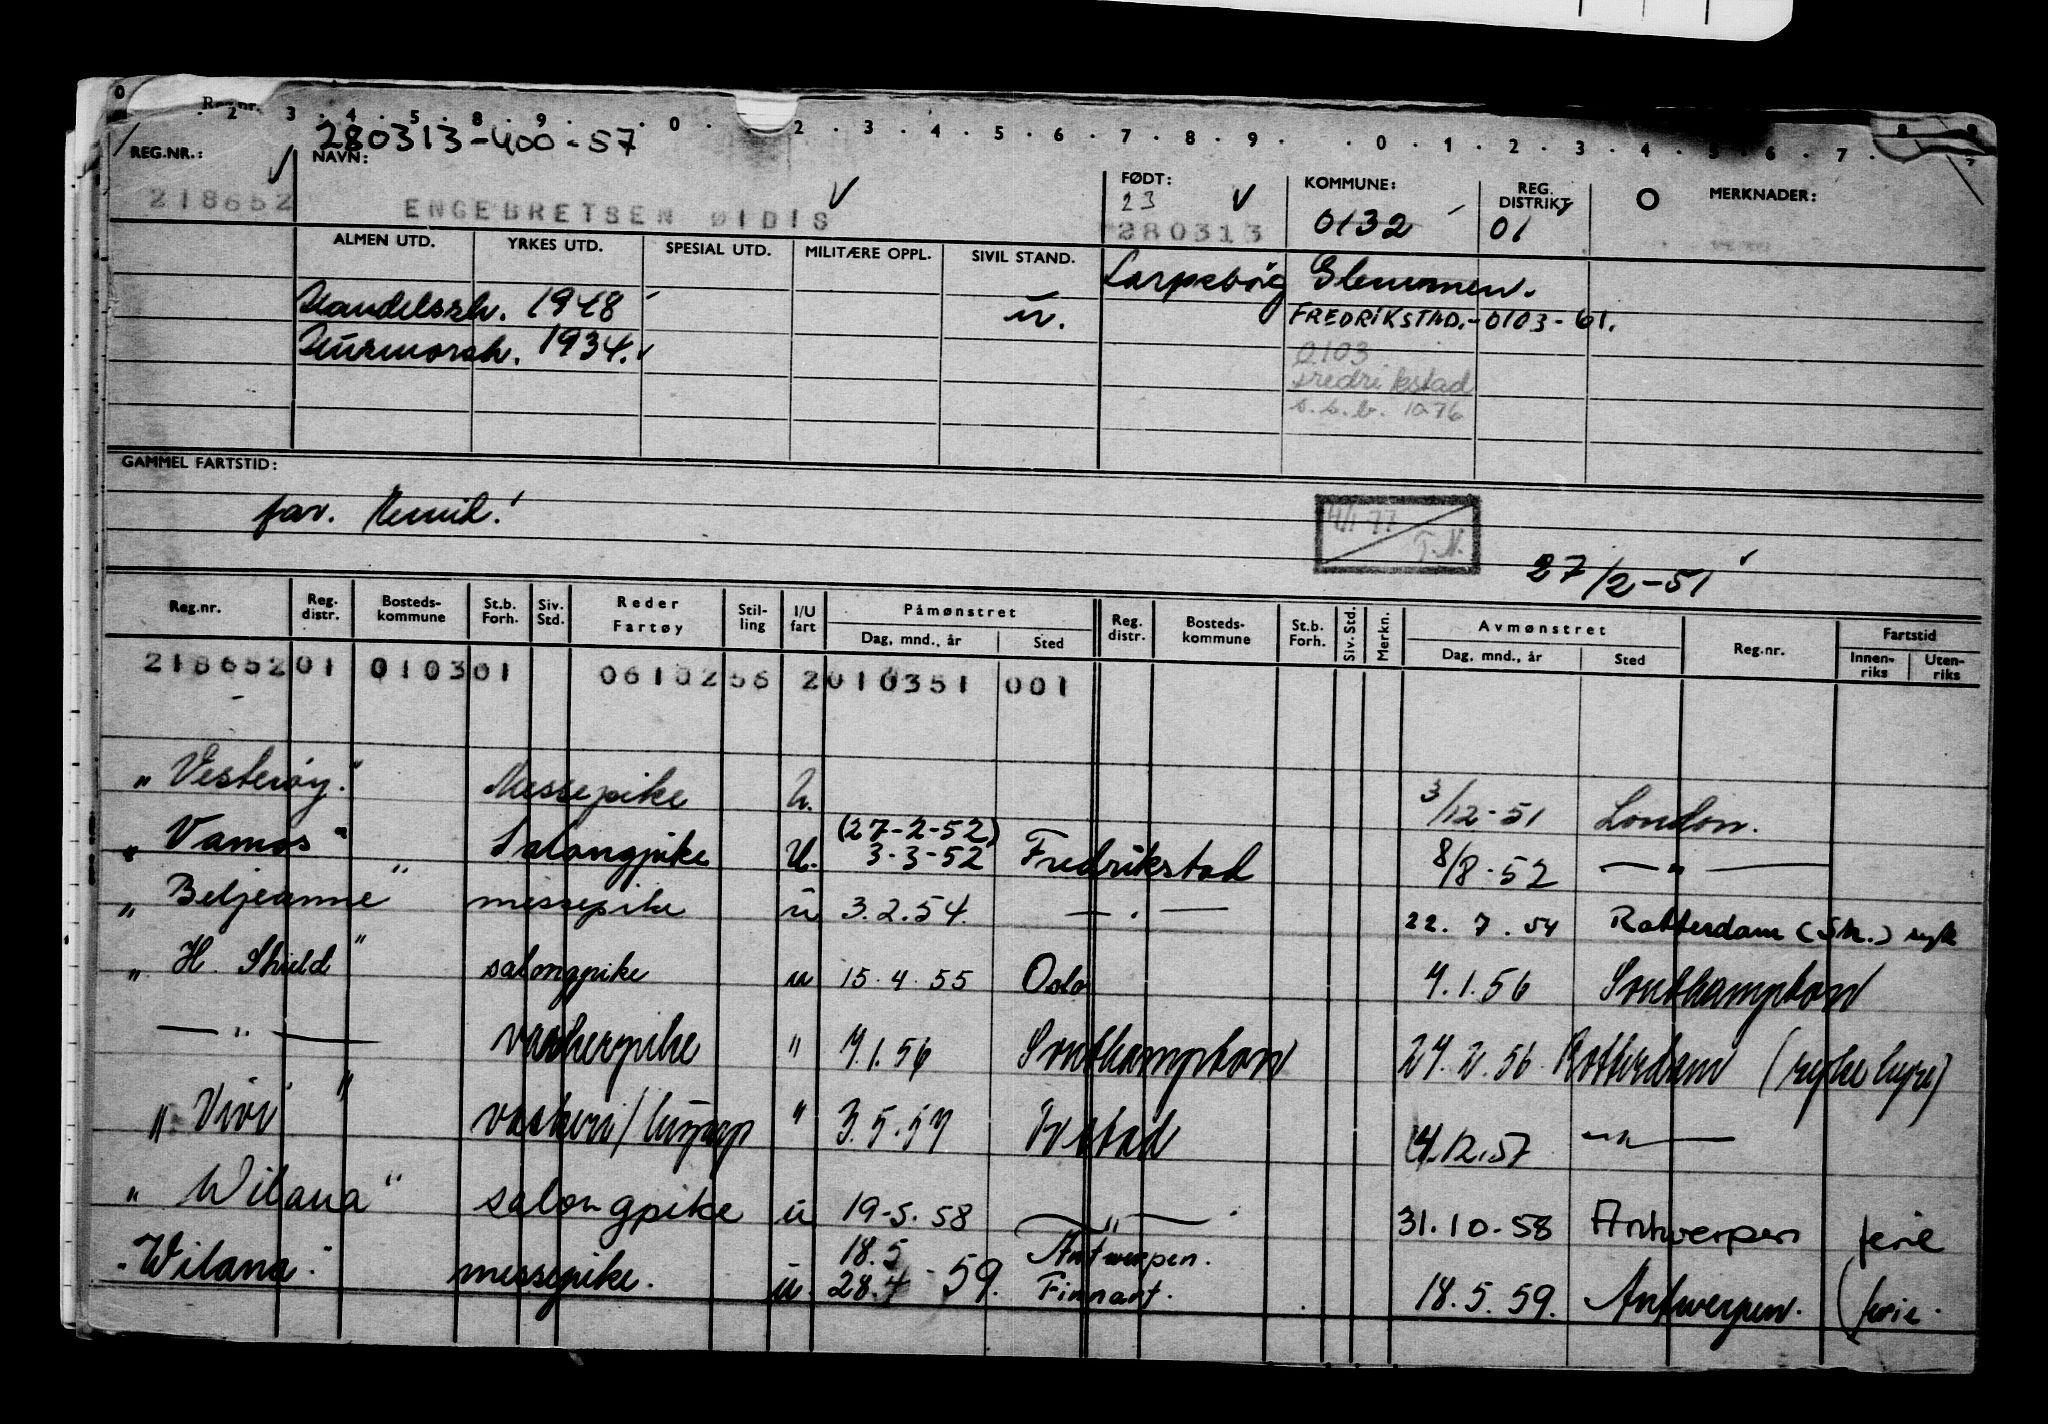 Reg.nr.
2 . 3 . 4 . 5 . 8 . 9 . . 0 . . 2 . 3 . 4 . 5 . 6 . 7 . 8 . 9 . . 0 . 1 . 2 . 3 . 4 . 5 . 6 . 7
280313-400-57
REG.NR.: NAVN: FØDT: KOMMUNE: REG. DISTRIKT O MERKNADER:
23
218652 ENGEBRETSEN ØIDIS 280313 0132 01
ALMEN UTD. YRKES UTD. SPESIAL UTD. MILITÆRE OPPL. SIVIL STAND.
Sarpsborg Glemmen.
Handelssk. 1948 u. FREDRIKSTAD.-0103-61.
Husmorsk. 1934.
0103
Fredrikstad
s.s.b. 1076
GAMMEL FARTSTID:
T.N.
27/2-51
Reg.nr. Reg. distr. Bosteds- kommune St.b. Forh. Siv. Std. Reder Fartøy Stil- ling I/U fart Påmønstret Dag, mnd., år Sted Reg. distr. Bosteds- kommune St.b. Forh. Siv. Std. Merkn. Avmønstret Dag, mnd., år Sted Reg.nr. Fartstid Innen- riks Uten- riks
218652 01 0103 01 0610256 2 010351 001
"Vesterøy." Messepike U. 3/12-51 London.
"Vamos" Salongpike U. (27-2-52) 3-3-52 Fredrikstad 8/8-52 — " —
"Beljeanne" messepike u 3.2.54. — " — 22.7.54 Rotterdam (Sk.) syk
"H. Shield" salongpike u 15.4.55 Oslo 4.1.56 Southampton
— " — vaskerpike " 4.1.56 Southampton 24.2.56 Rotterdam (syke hyre)
"Vivi" " 3.5.57 Fr stad 4.12.57 — " —
"Wilana" salongpike u 19-5.58 — " — 31.10-58 Antwerpen ferie
"Wilana" messepike. u. 18.5 28.4 -59. Antwerpen. Finnart. 18.5.59. Antwerpen. (ferie.